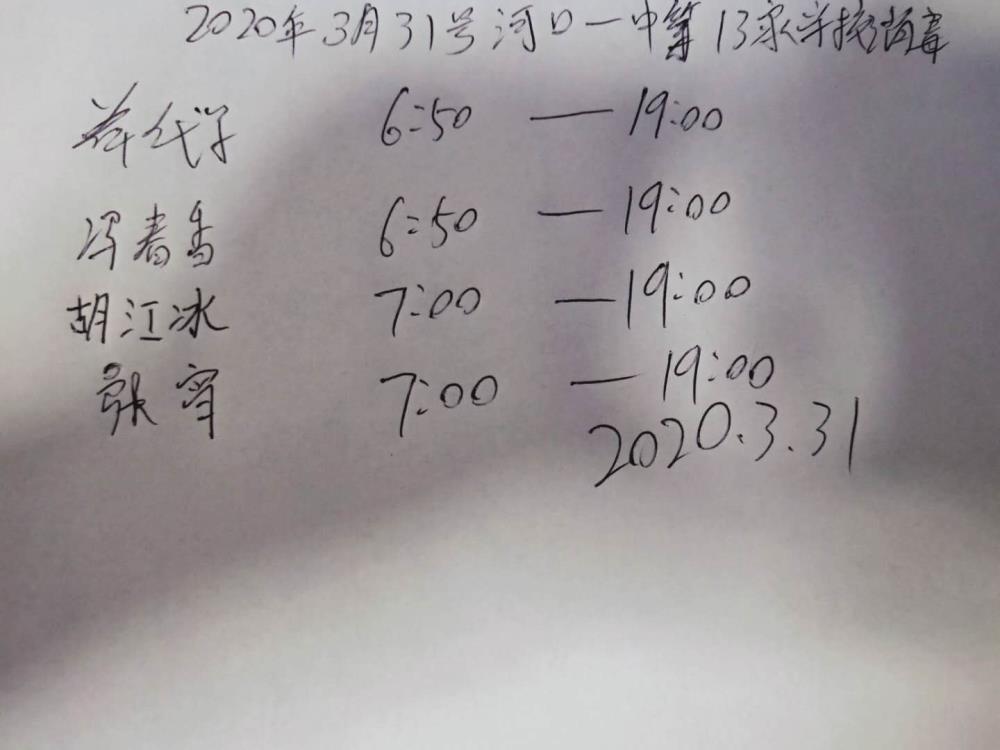 2020年3月31号河口一中等13家学校消毒
6:50 — 19:00
冯春香 6:50 — 19:00
胡江冰 7:00 — 19:00
张宵 7:00 — 19:00
2020.3.31